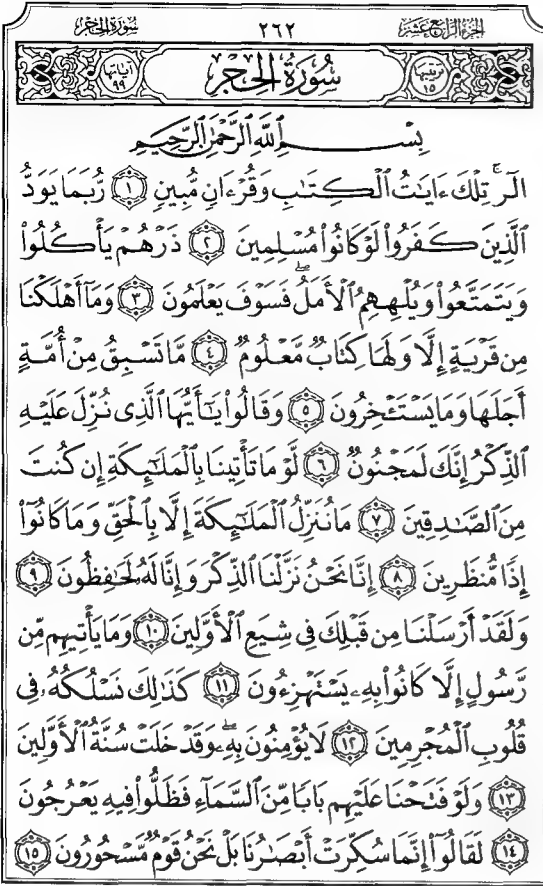 سُورَةُ الحِجْرِ
٢٦٢
الجُزْءُ الرَّابِعَ عَشَرَ
ترتيبها ١٥
سُورَةُ الحِجْرِ
آياتها ٩٩
بِسْمِ ٱللَّهِ ٱلرَّحْمَٰنِ ٱلرَّحِيمِ
الٓرۚ تِلْكَ ءَايَٰتُ ٱلْكِتَٰبِ وَقُرْءَانٍ مُّبِينٍ ١ رُّبَمَا يَوَدُّ
ٱلَّذِينَ كَفَرُوا۟ لَوْ كَانُوا۟ مُسْلِمِينَ ٢ ذَرْهُمْ يَأْكُلُوا۟
وَيَتَمَتَّعُوا۟ وَيُلْهِهِمُ ٱلْأَمَلُۖ فَسَوْفَ يَعْلَمُونَ ٣ وَمَآ أَهْلَكْنَا
مِن قَرْيَةٍ إِلَّا وَلَهَا كِتَابٌ مَّعْلُومٌ ٤ مَّا تَسْبِقُ مِنْ أُمَّةٍ
أَجَلَهَا وَمَا يَسْتَـْٔخِرُونَ ٥ وَقَالُوا۟ يَٰٓأَيُّهَا ٱلَّذِى نُزِّلَ عَلَيْهِ
ٱلذِّكْرُ إِنَّكَ لَمَجْنُونٌ ٦ لَّوْ مَا تَأْتِينَا بِٱلْمَلَٰٓئِكَةِ إِن كُنتَ
مِنَ ٱلصَّٰدِقِينَ ٧ مَا نُنَزِّلُ ٱلْمَلَٰٓئِكَةَ إِلَّا بِٱلْحَقِّ وَمَا كَانُوٓا۟
إِذًا مُّنظَرِينَ ٨ إِنَّا نَحْنُ نَزَّلْنَا ٱلذِّكْرَ وَإِنَّا لَهُۥ لَحَٰفِظُونَ ٩
وَلَقَدْ أَرْسَلْنَا مِن قَبْلِكَ فِى شِيَعِ ٱلْأَوَّلِينَ ١٠ وَمَا يَأْتِيهِم مِّن
رَّسُولٍ إِلَّا كَانُوا۟ بِهِۦ يَسْتَهْزِءُونَ ١١ كَذَٰلِكَ نَسْلُكُهُۥ فِى
قُلُوبِ ٱلْمُجْرِمِينَ ١٢ لَا يُؤْمِنُونَ بِهِۦۖ وَقَدْ خَلَتْ سُنَّةُ ٱلْأَوَّلِينَ
١٣ وَلَوْ فَتَحْنَا عَلَيْهِم بَابًا مِّنَ ٱلسَّمَآءِ فَظَلُّوا۟ فِيهِ يَعْرُجُونَ
١٤ لَقَالُوٓا۟ إِنَّمَا سُكِّرَتْ أَبْصَٰرُنَا بَلْ نَحْنُ قَوْمٌ مَّسْحُورُونَ ١٥